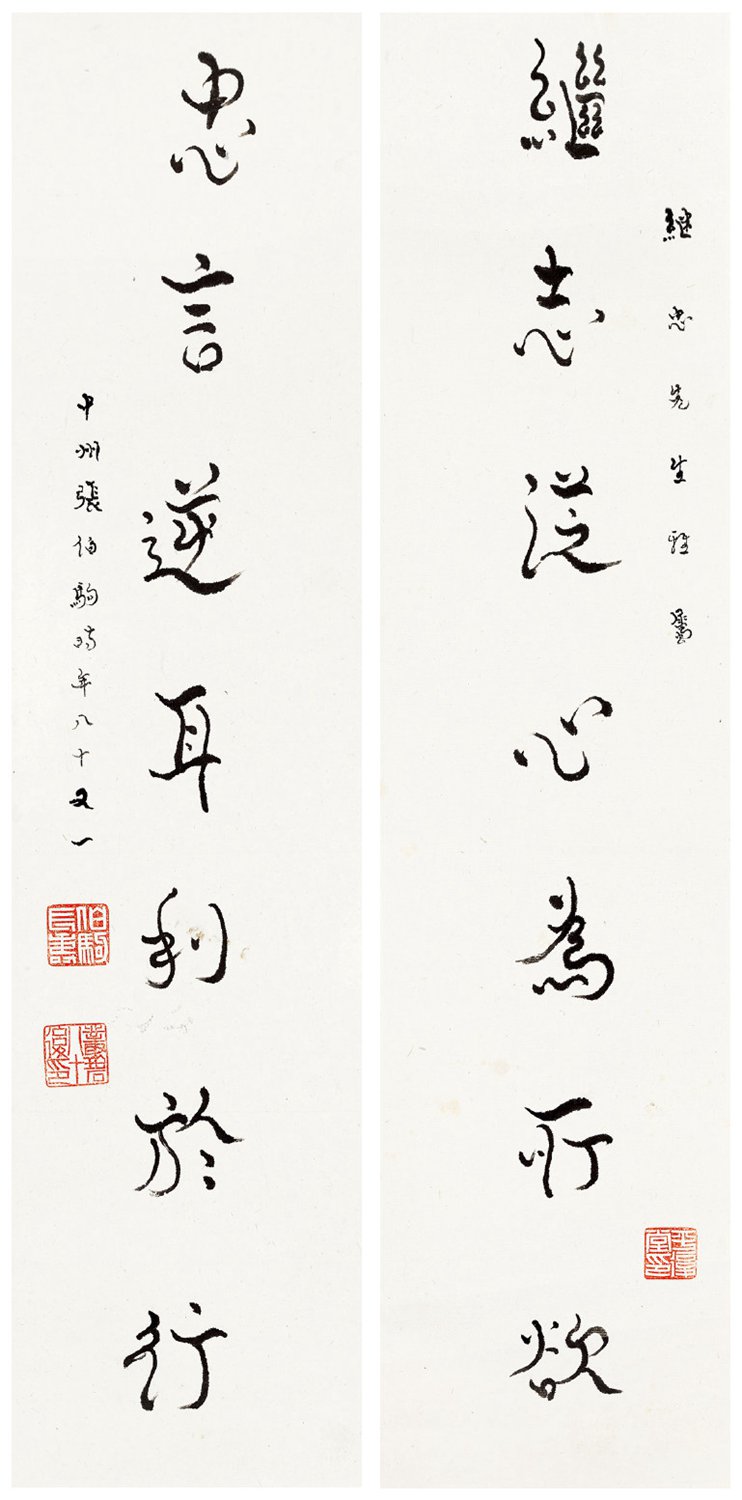 繼志從心為所欲
繼忠先生雅屬
忠言逆耳利於行
中州張伯駒時年八十又一
伯駒長壽